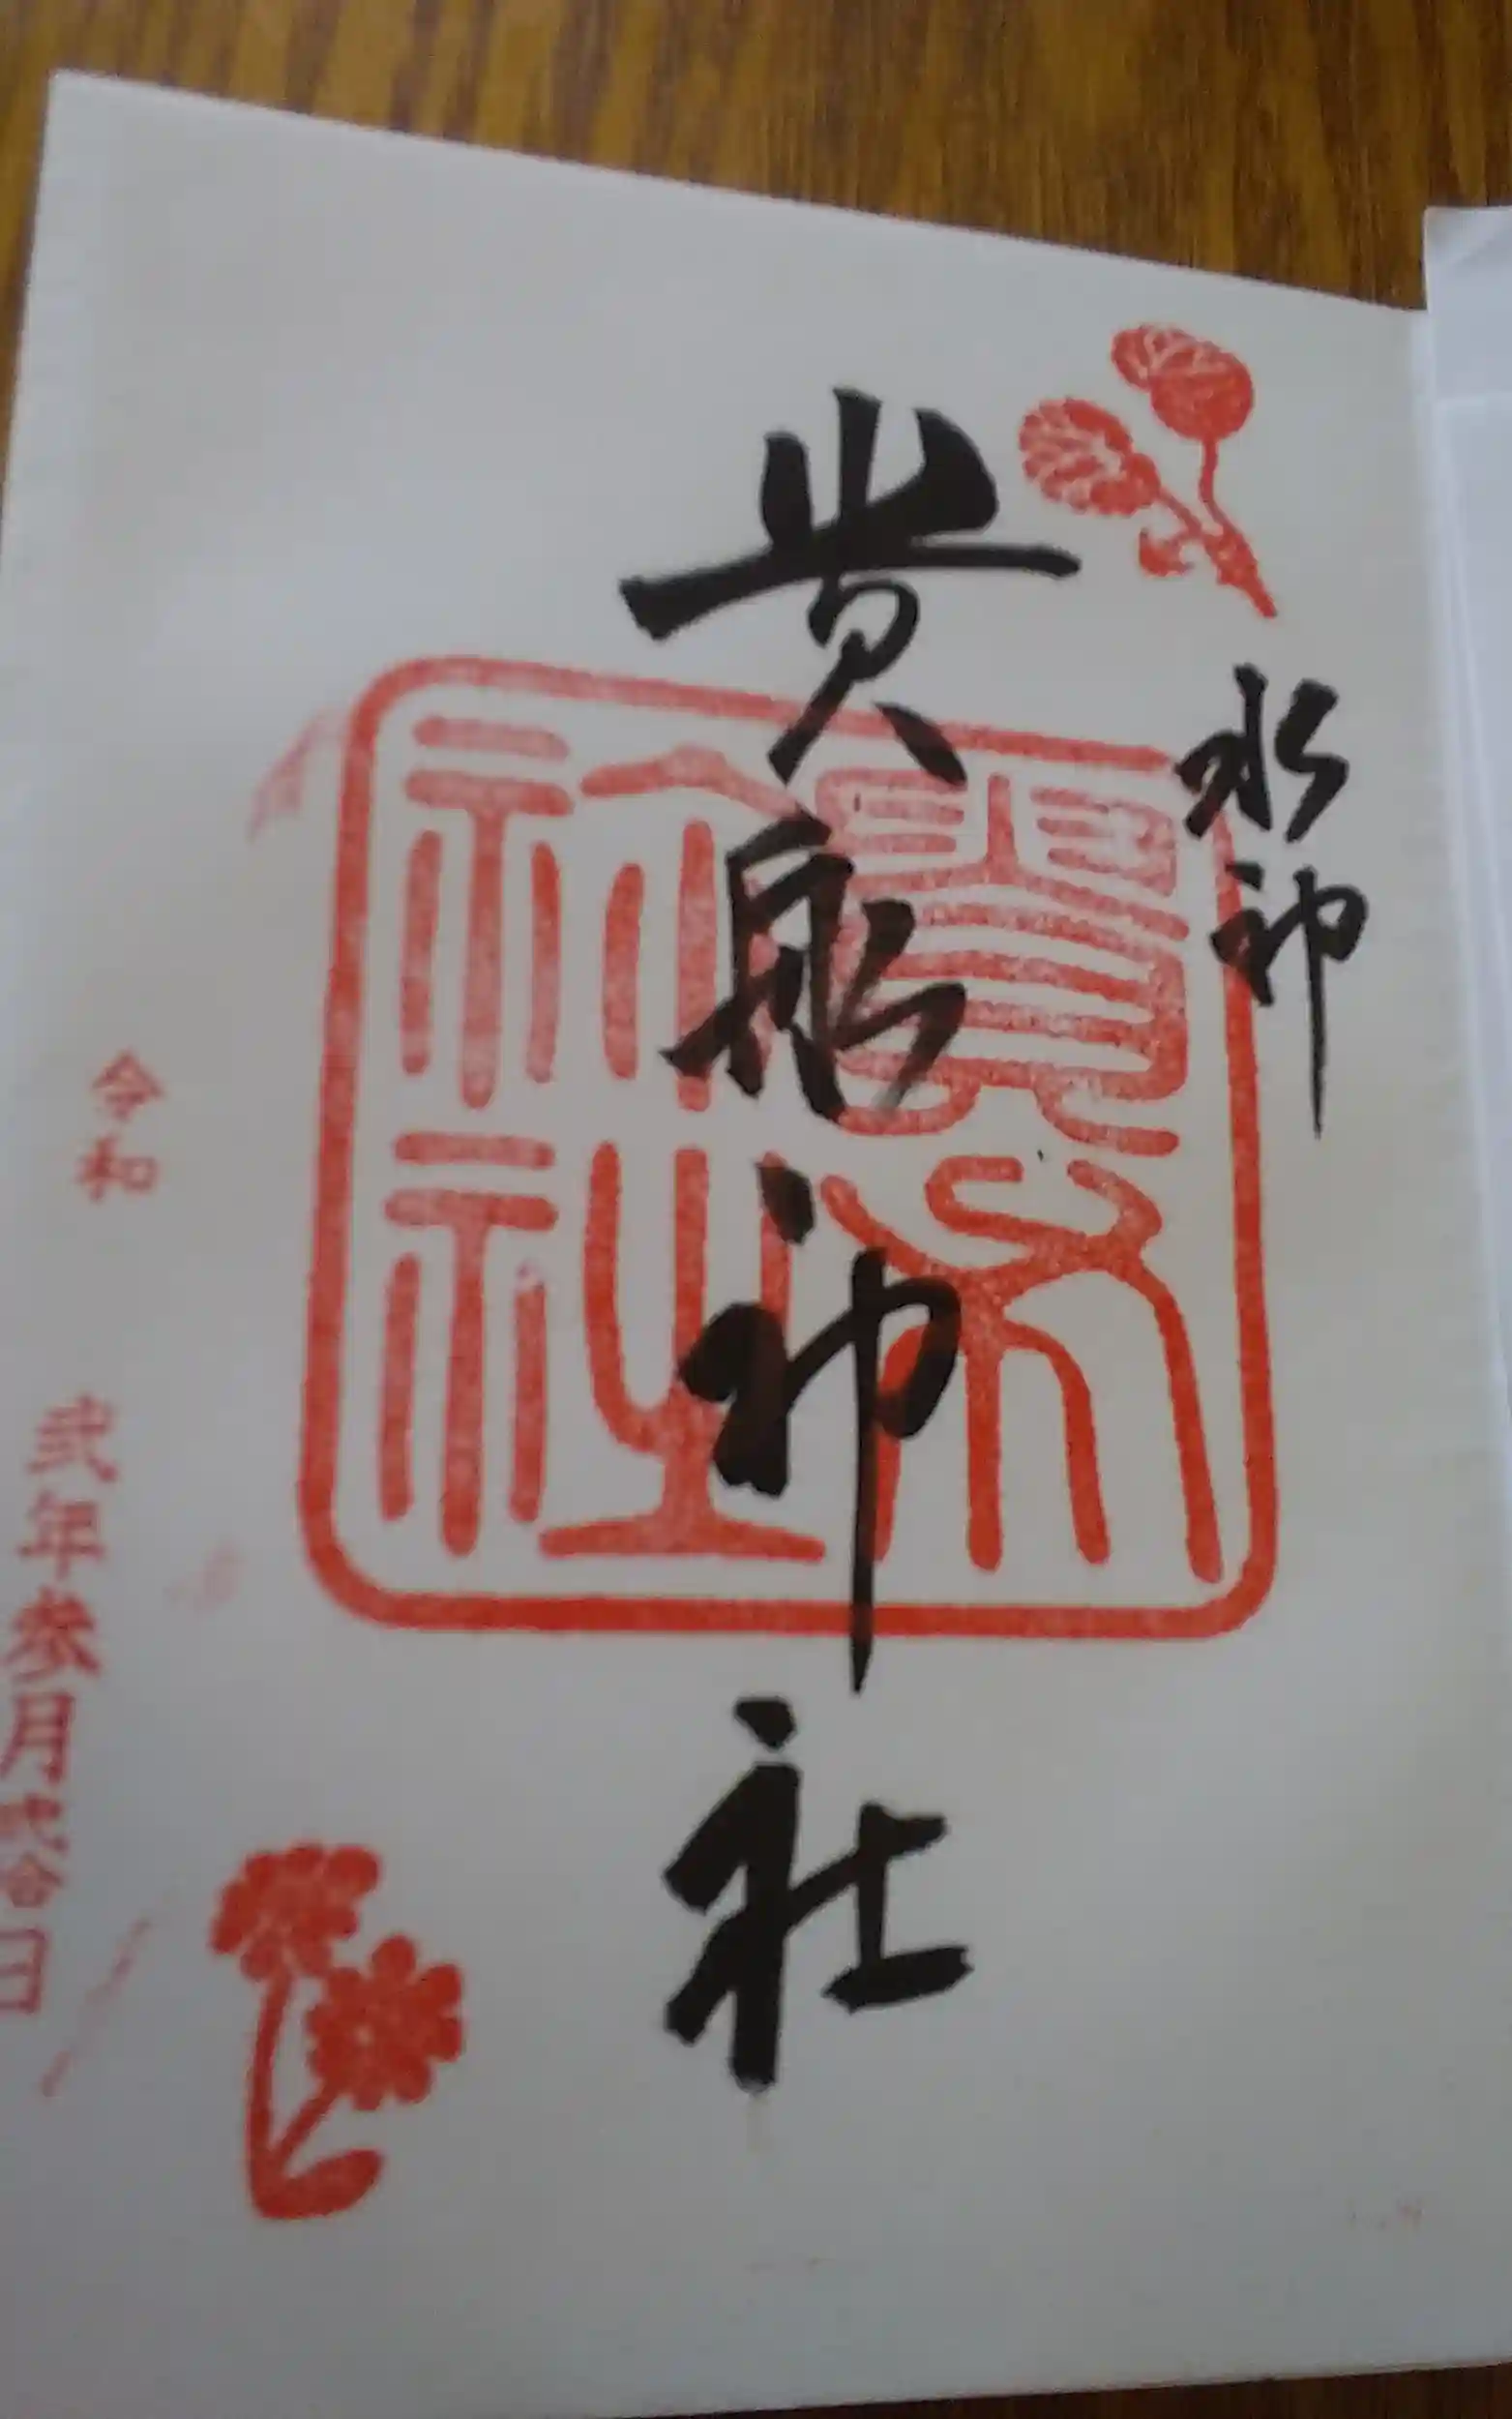 水神
貴船神社
貴布
祢社
令和 弐年参月弐拾日